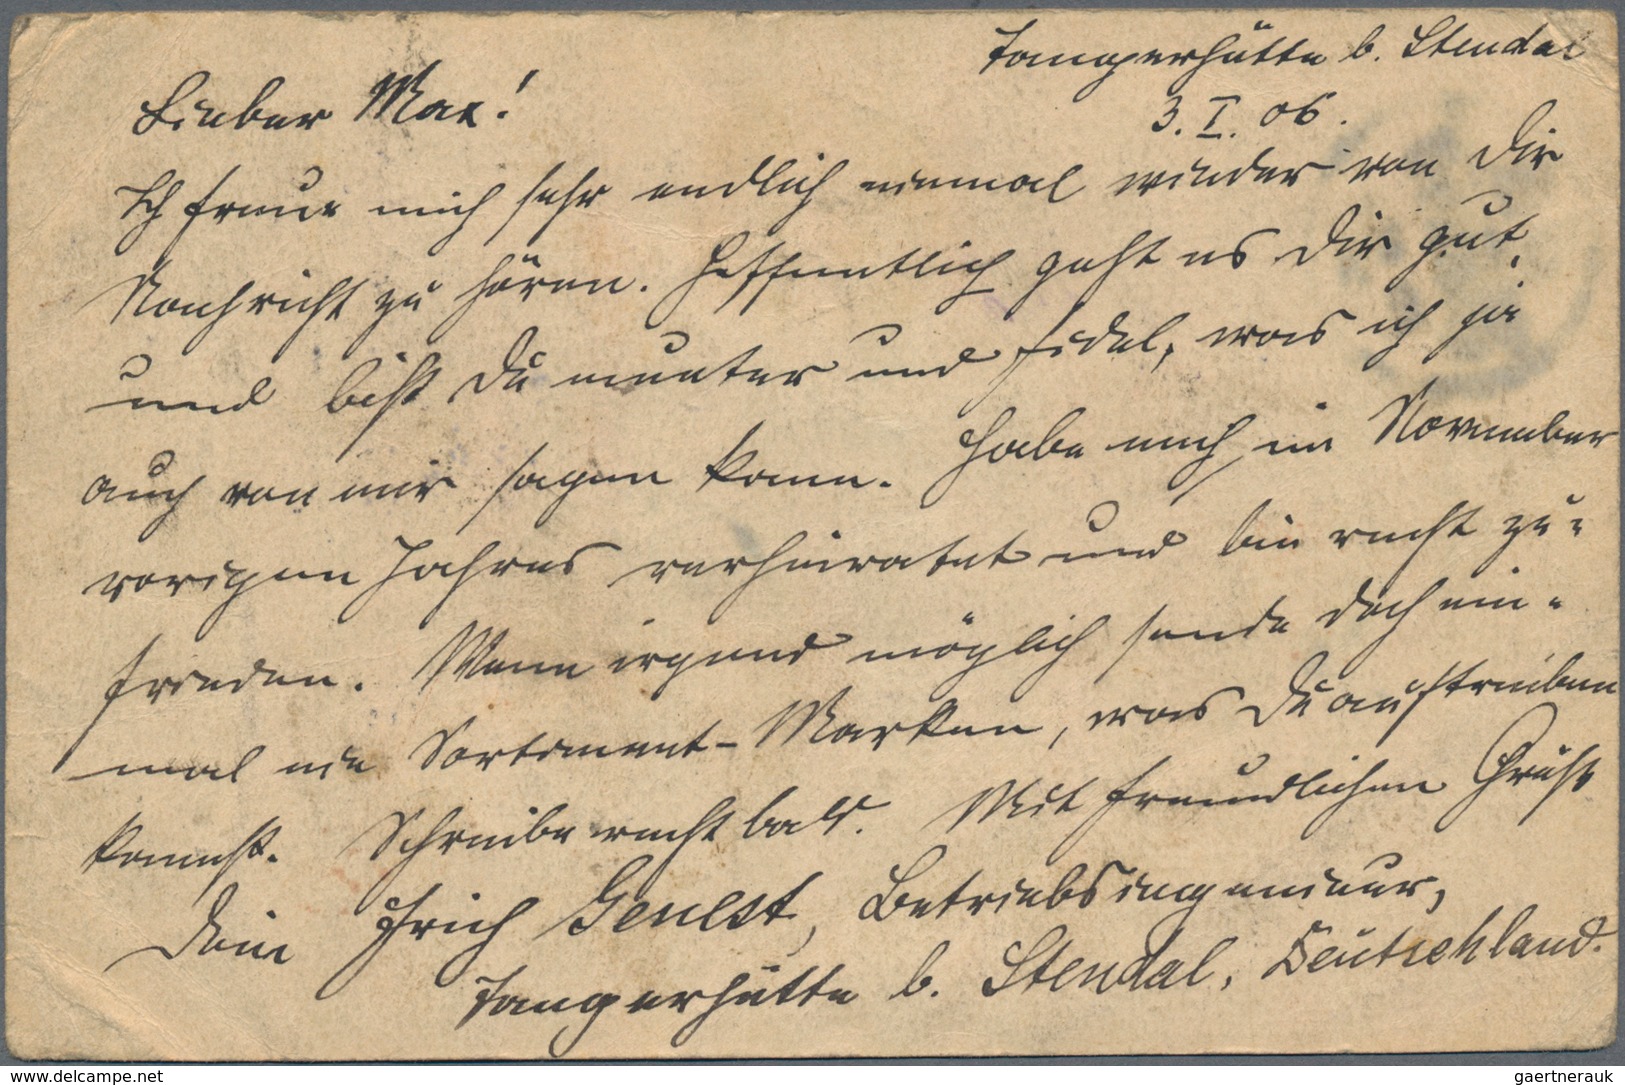 Tangerhütte b. Stendal
3. I. 06.
Lieber Max!
Ich freue mich sehr endlich einmal wieder von Dir
Nachricht zu hören. Hoffentlich geht es Dir gut,
und bist Du munter und fidel, was ich ja
auch von mir sagen kann. Habe mich im November
vorigen Jahres verheiratet und bin recht zu=
frieden. Wenn irgend möglich sende doch ein=
mal ein Sortiment-Marken, was Du auftreiben
kannst. Schreibe recht bald. Mit freundlichen Gruß
Dein Erich Genest, Betriebsingenieur,
Tangerhütte b. Stendal, Deutschland.
www.delcampe.net
gaertnerauk